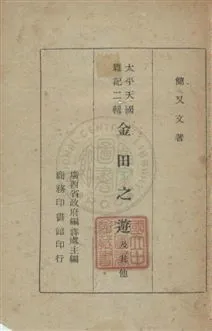 簡又文著
太平天國
雜記二輯
金田之遊及其他
廣西省政府編譯處主編
商務印書館印行